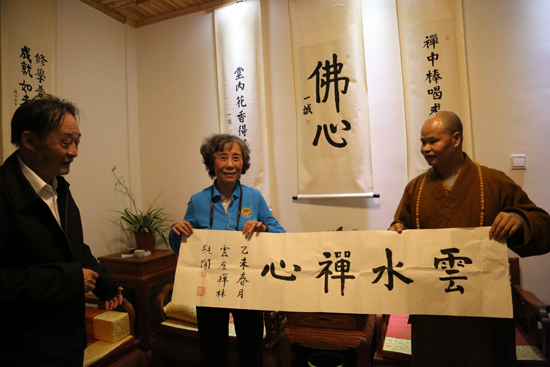 雲水禪心
乙未春月
雲居禪林
佛心
一誠
禪中棒喝
堂內花香得
一誠
修學
成就如